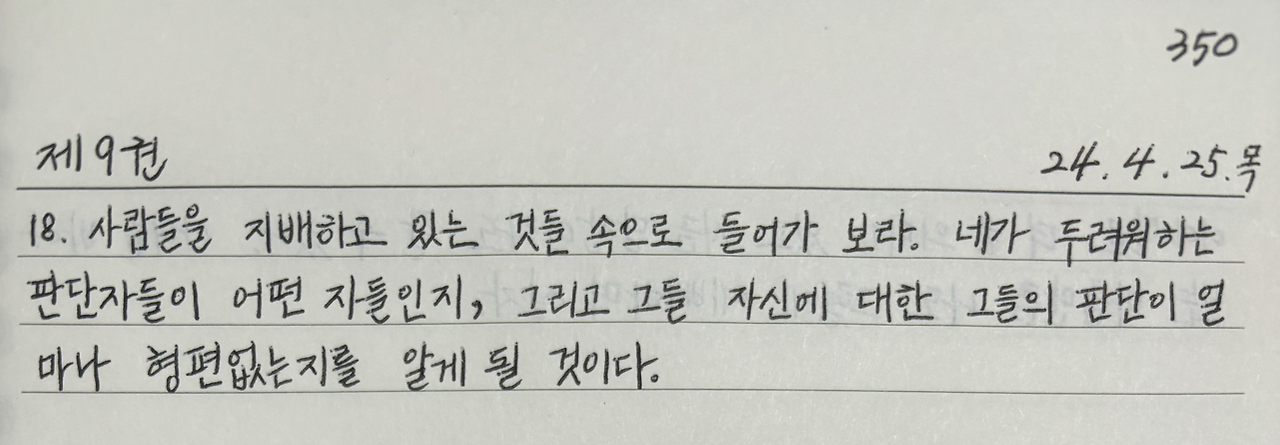 350
제9권 24.4.25.목
18. 사람들을 지배하고 있는 것들 속으로 들어가 보라. 네가 두려워하는
판단자들이 어떤 자들인지, 그리고 그들 자신에 대한 그들의 판단이 얼
마나 형편없는지를 알게 될 것이다.